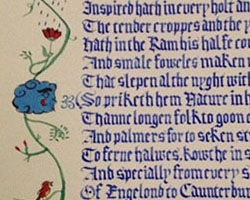 Inspired hath in every holt an
The tender croppes and the y
Hath in the Ram his halfe co
And smale foweles maken
That slepen al the nyght with
So priketh hem Nature in h
Thanne longen folk to goon
And palmers for to seken st
To ferne halwes, kowthe in s
And specially from every s
Of Engelond to Caunterbur